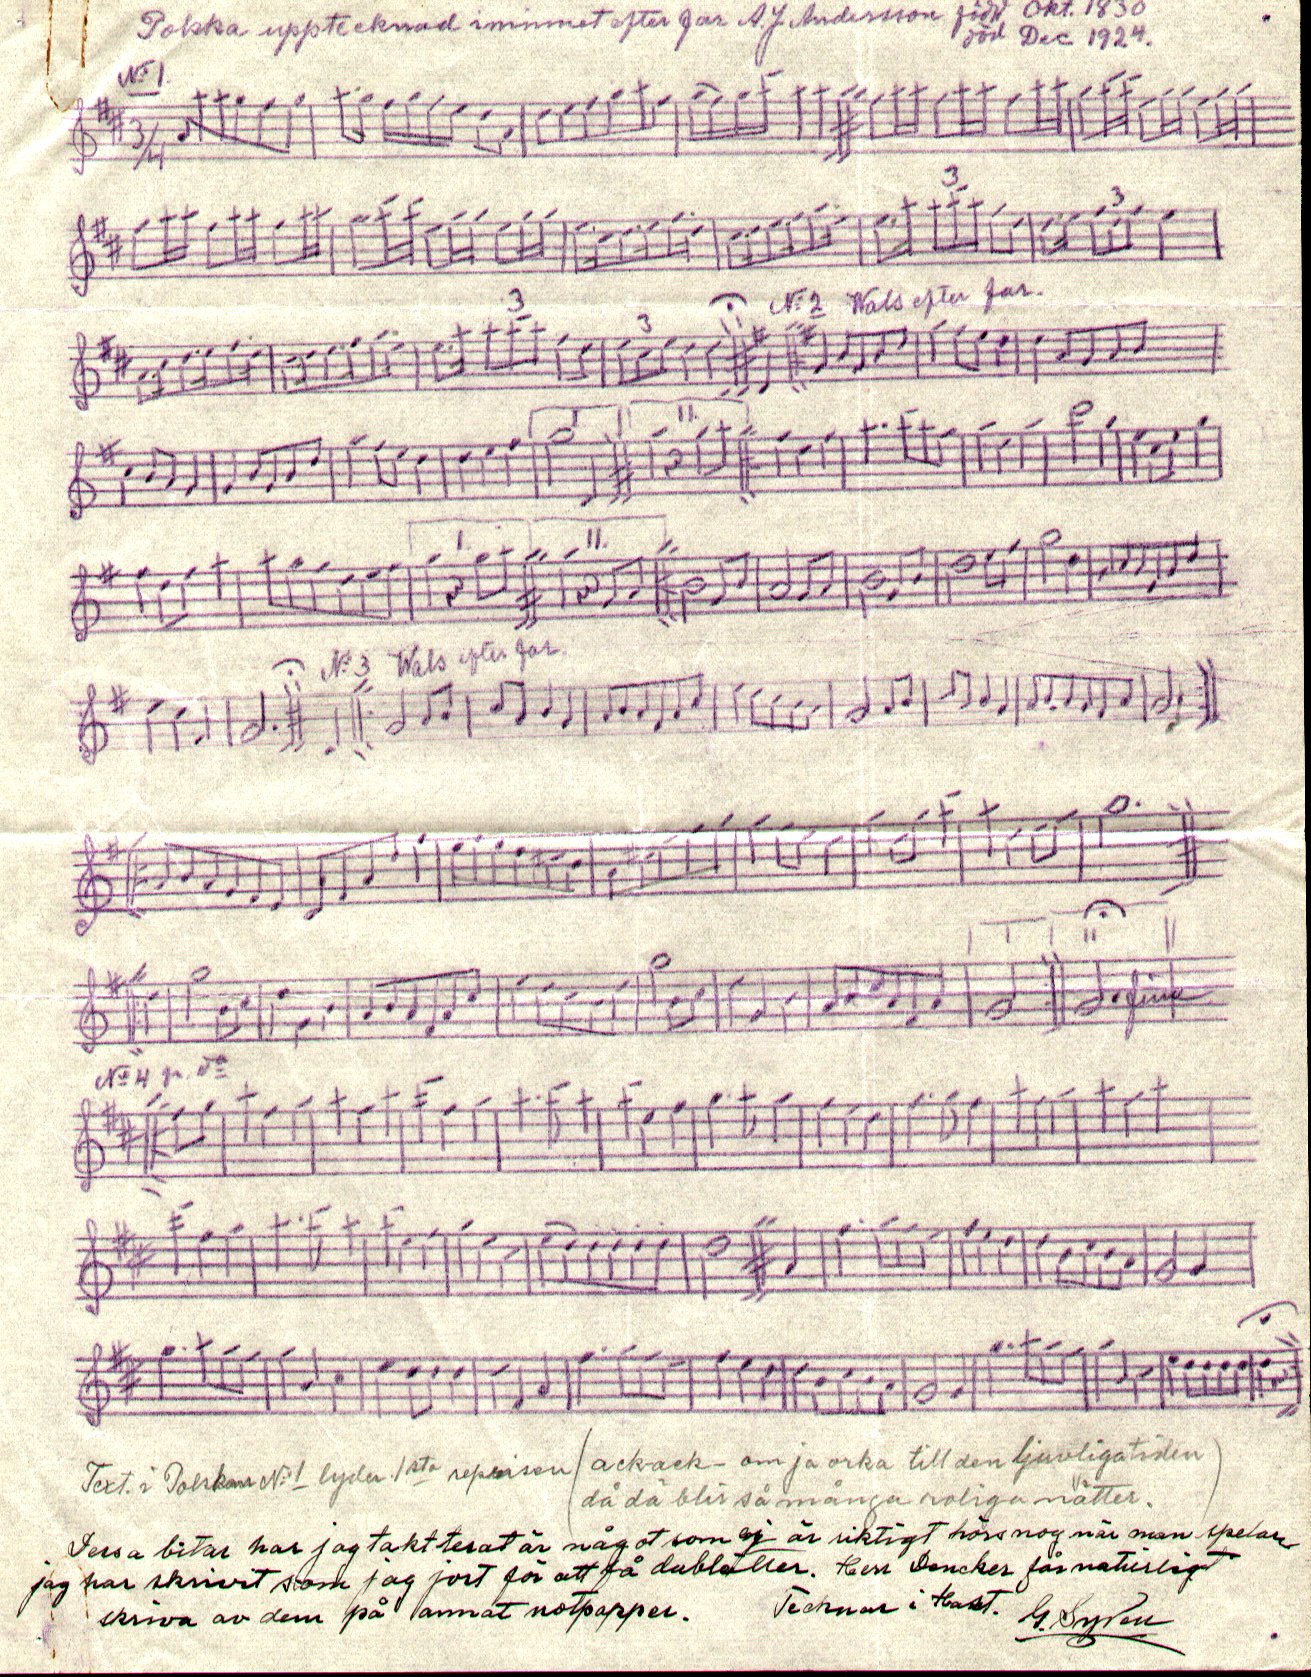 Polska upptecknad i minnet efter far A J Andersson född Okt. 1830
död Dec 1924.
No 1.
3/4
3
3
3
3
No 2 Wals efter far.
I
II
I.
II.
No 3 Wals efter far.
I
II
Fine
No 4
Text. i Polskan No 1 lyder 1sta reprisen (ack ack – om ja orka till den ljuvliga tiden
då dä blir så många roliga nätter.)
Dessa bitar har jag är något som ej är riktigt hörs nog när man spelar
jag har skrivit som jag jort för att få dubletter. Herr Dencker får naturligt
skriva av dem på annat notpapper. Tecknar i Hast. G. Sydén